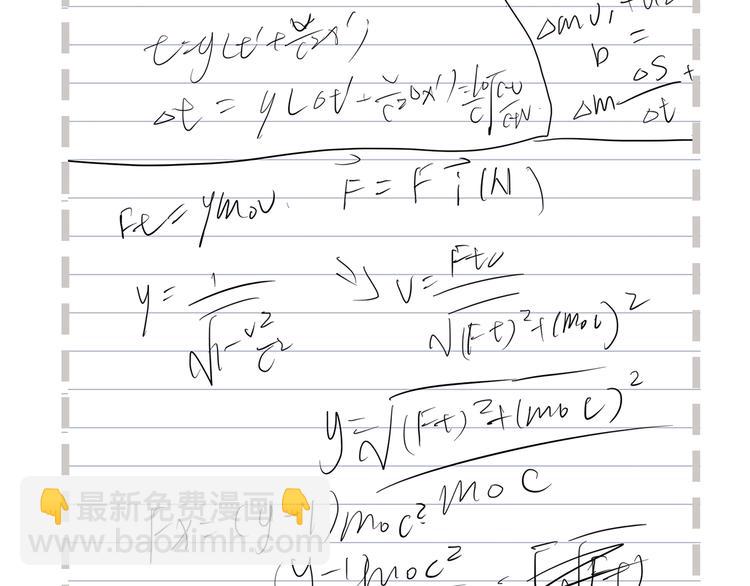 t=γ(t'+v/c²x')
Δt = γ(Δt'+v/c²Δx')=l₀/c√
Δmv₁+
=
Δm ΔS/Δt +
Ft=γm₀v. F⃗=Fi⃗(N)
γ=1/√1-v²/c² ⇒ v=Ftc/√(Ft)²+(m₀c)²
γ=√(Ft)²+(m₀c)²/m₀c
Fx=(γ-1)m₀c²
(γ-1)m₀c² =
👇最新免费漫画👇
www.baozimh.com